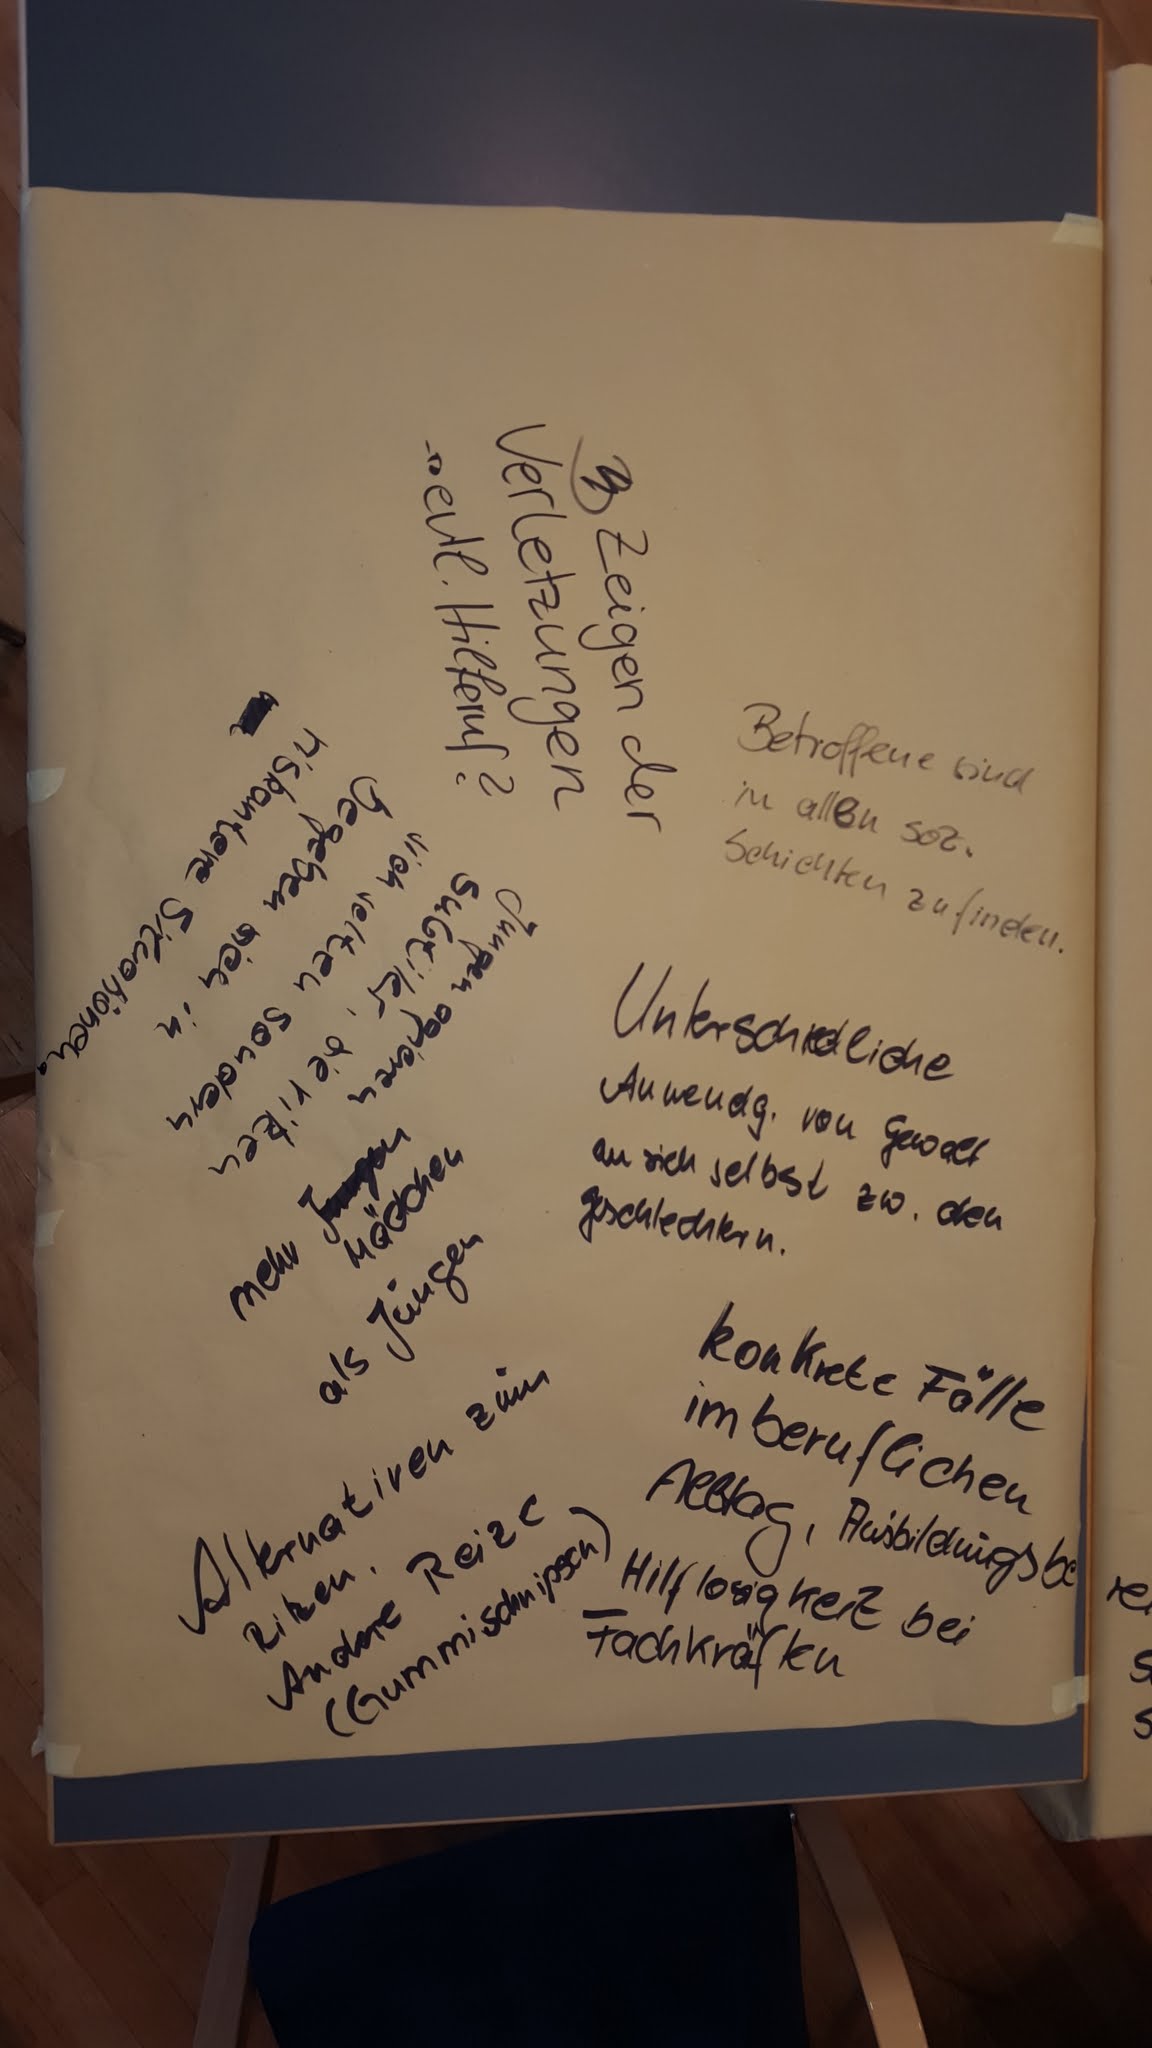 Zeigen der
Verletzungen
→ evtl. Hilferuf?
Betroffene sind
in allen soz.
Schichten zu finden.
Jungen agieren
subtiler, die ritzen
sich selten sondern
begeben sich in
riskantere Situationen.
Unterschiedliche
Anwendg. von Gewalt
an sich selbst zw. den
Geschlechtern.
mehr
Mädchen
als Jungen
konkrete Fälle
im beruflichen
Alltag, Ausbildungsbe
Hilflosigkeit bei
Fachkräften
Alternativen zum
Ritzen.
Andere Reize
(Gummischnipsen)